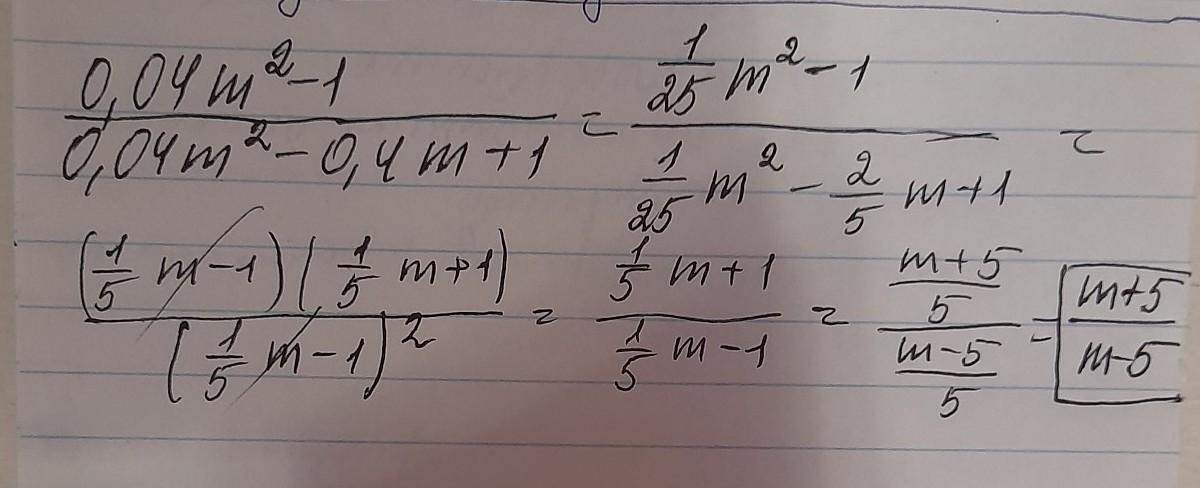 (0,04m² - 1)/(0,04m² - 0,4m + 1) = (1/25 m² - 1)/(1/25 m² - 2/5 m + 1) =
((1/5 m - 1)(1/5 m + 1))/(1/5 m - 1)² = (1/5 m + 1)/(1/5 m - 1) = ((m+5)/5)/((m-5)/5) = (m+5)/(m-5)